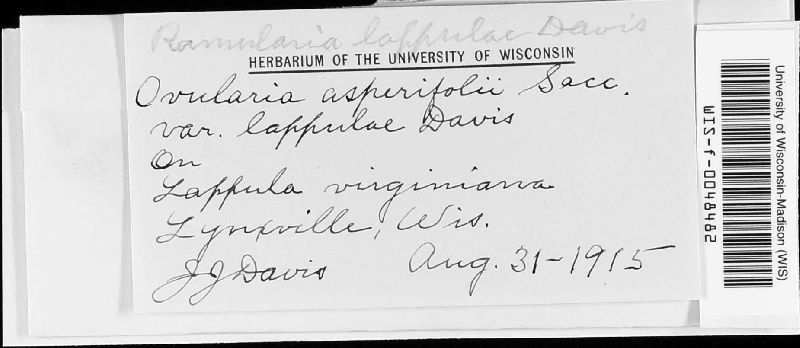 Ramularia lappulae Davis
HERBARIUM OF THE UNIVERSITY OF WISCONSIN
Ovularia asperifolii Sacc.
var. lappulae Davis
On
Lappula virginiana
Lynxville, Wis.
JJ Davis Aug. 31-1915
University of Wisconsin-Madison (WIS)
WIS-f-0048482